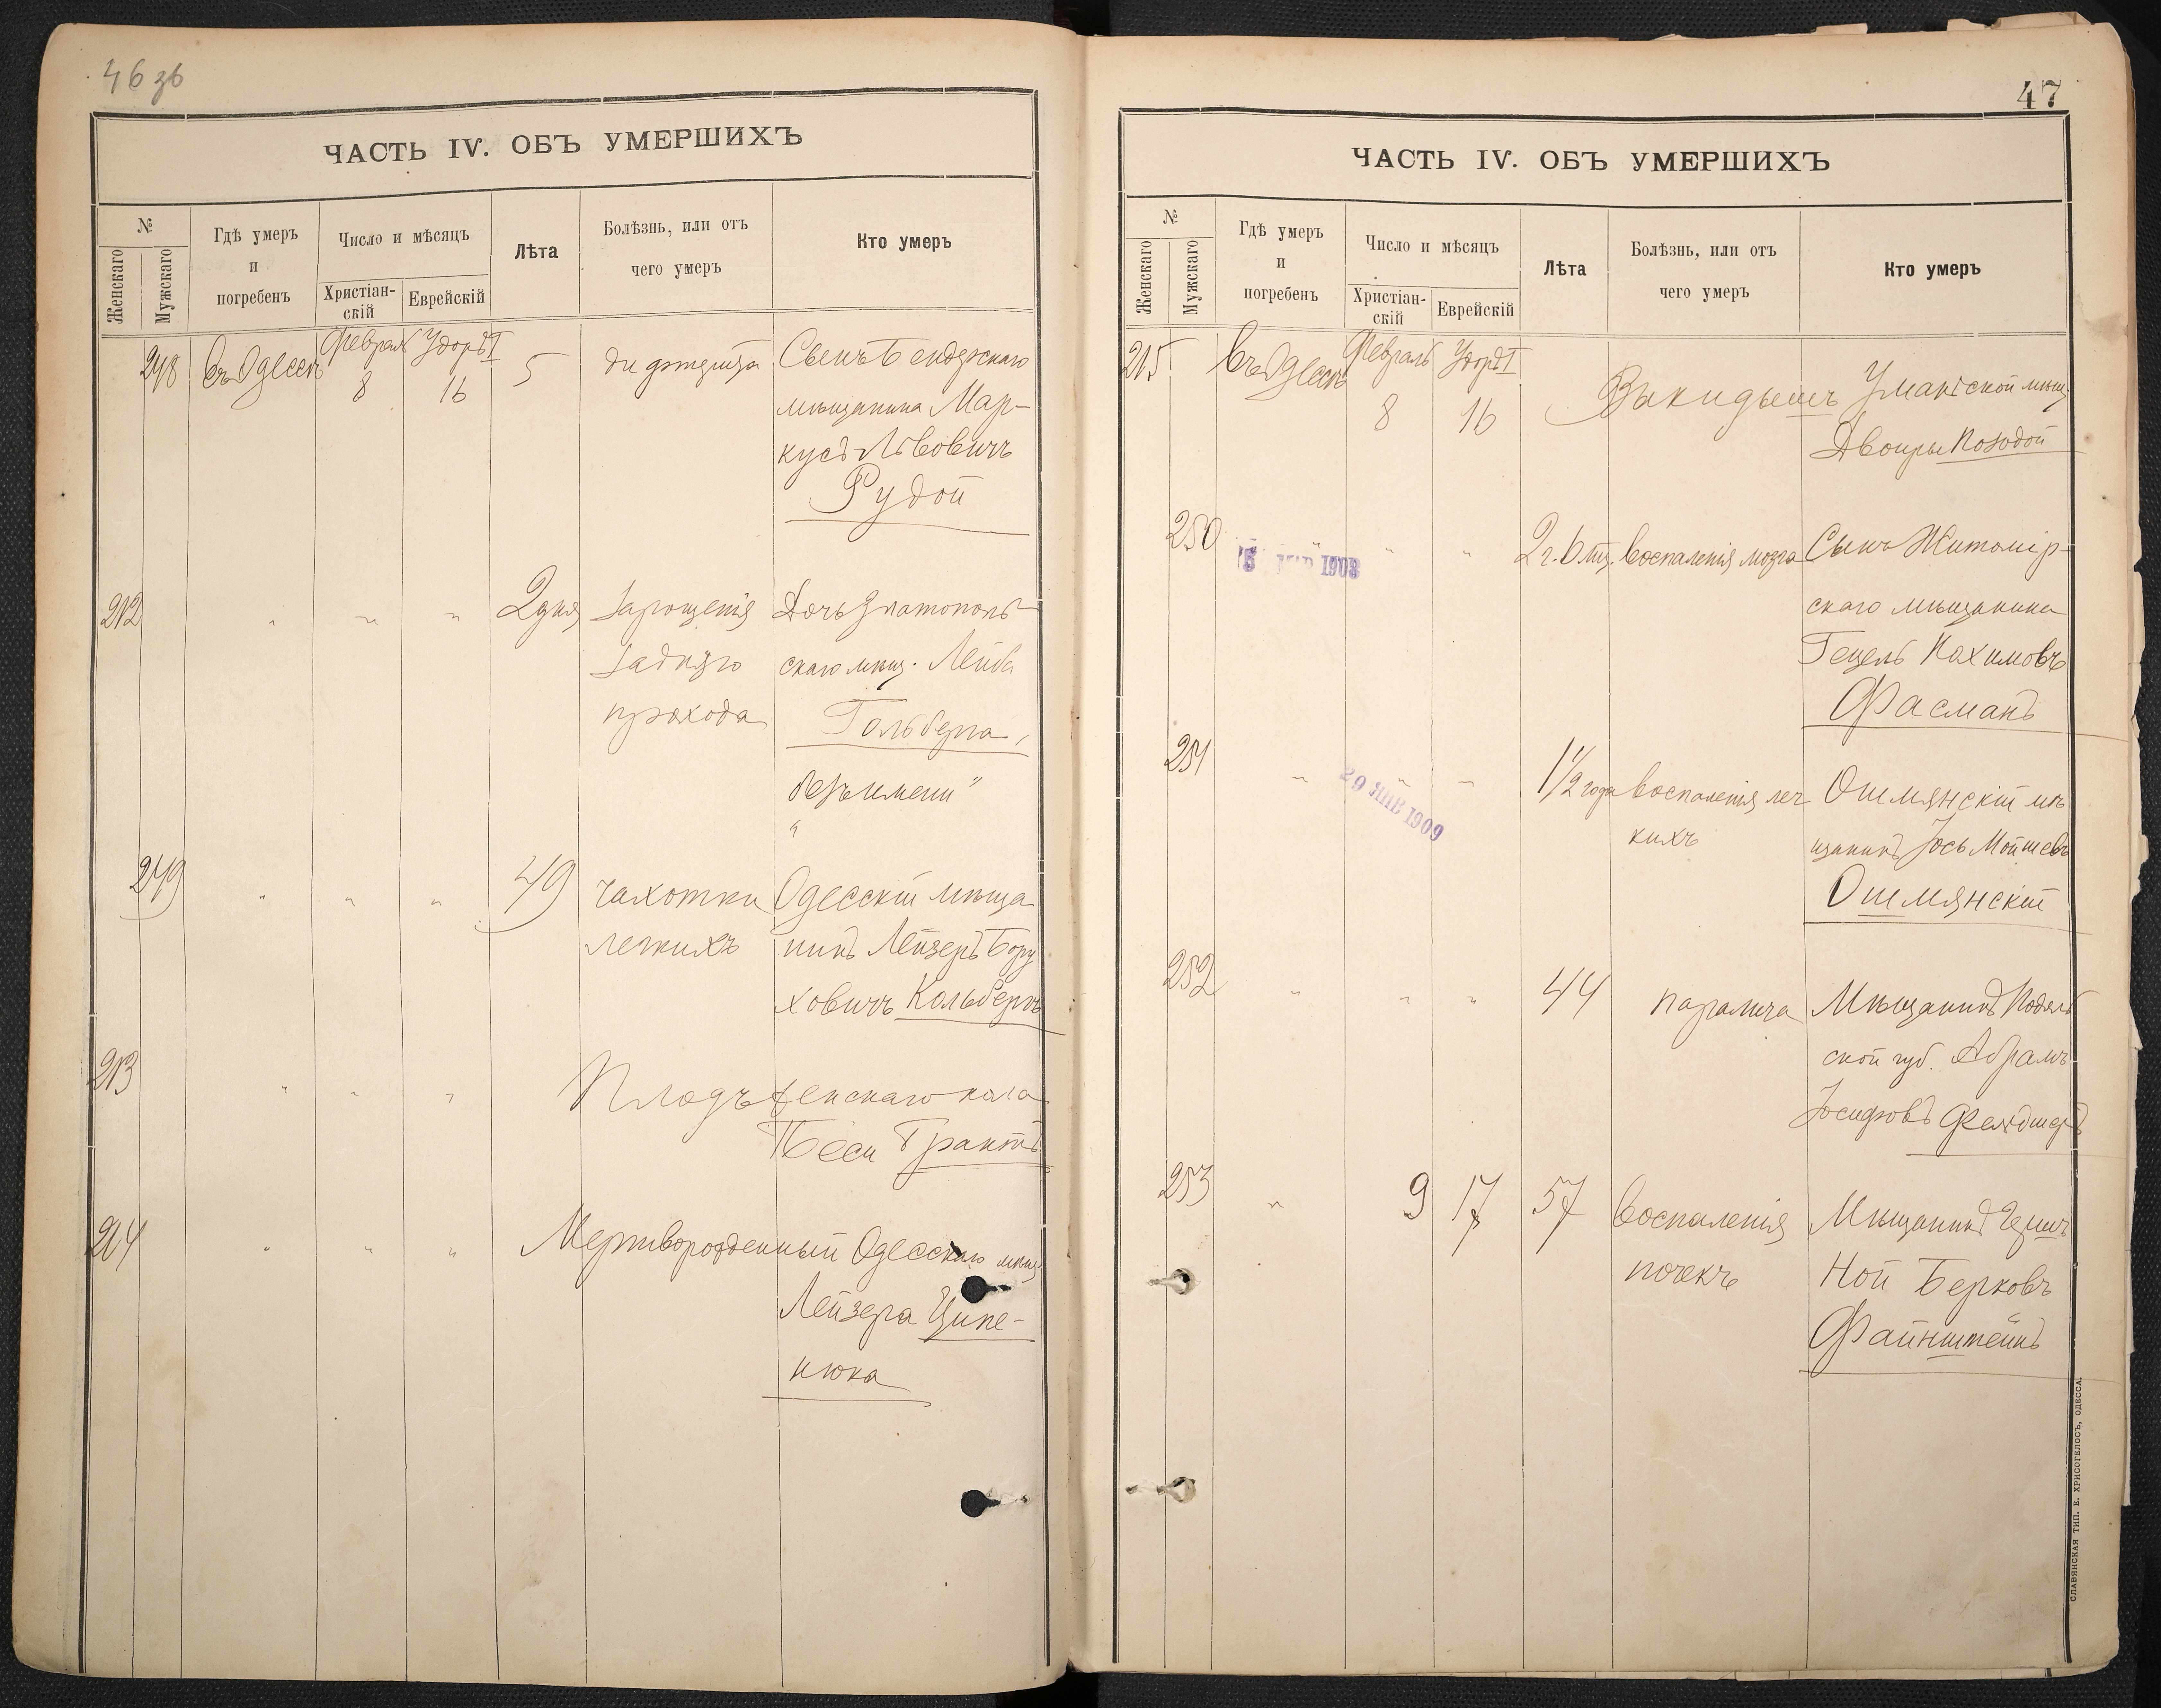 46 зв
ЧАСТЬ IV. ОБЪ УМЕРШИХЪ
№
Женскаго
Мужскаго
Гдѣ умеръ
и
погребенъ
Число и мѣсяцъ
Христіан-
скій
Еврейскій
Лѣта
Болѣзнь, или отъ
чего умеръ
Кто умеръ
248 Въ Одессѣ Февраля Адоръ I 5 дифтерита Сынъ Бендерскаго
8 16 мѣщанина Мар-
кусъ Львовичъ
Рудой
212 " " " 2 дня Заро­щенія Дочь Златополь-
заднуго скаго мѣщ. Лейба
прохода Гольберга,
безъ имени"
"
249 " " " 49 чахотки Одесскій мѣща
легкихъ нинъ Лейзеръ Бору
ховичъ Кольбергъ
213 " " " Плодъ женскаго пола
Песи Трактъ
214 " " " Мертворожденный Одесскаго мѣщ.
Лейзера Ципе-
нюка
47
ЧАСТЬ IV. ОБЪ УМЕРШИХЪ
№
Женскаго
Мужскаго
Гдѣ умеръ
и
погребенъ
Число и мѣсяцъ
Христіан-
скій
Еврейскій
Лѣта
Болѣзнь, или отъ
чего умеръ
Кто умеръ
215 Въ Одессѣ Февраль Адоръ I
8 16 Выкидышъ Уманской мѣщ.
Двойры
250 " " " 2 г. 6 мѣс. воспаленія мозга Сынъ Житомір-
1908
скаго мѣщанина
Гецель Нахимовъ
Фасманъ
251 " " " 1 1/2 года воспаленія лег Ошмянскій мѣ
29 ЯНВ 1909
кихъ щанинъ Іось Мойшевъ
Ошмянскій
252 " " " 44 паралича Мѣщанинъ Подоль
ской губ. Абрамъ
Іосифовъ Фельдшеръ
253 " 9 17 57 воспаленія Мѣщанинъ
почекъ Ной Берковъ
Файнштейнъ
СЛАВЯНСКАЯ ТИП. Е. ХРИСОГЕЛОСЪ, ОДЕССА.